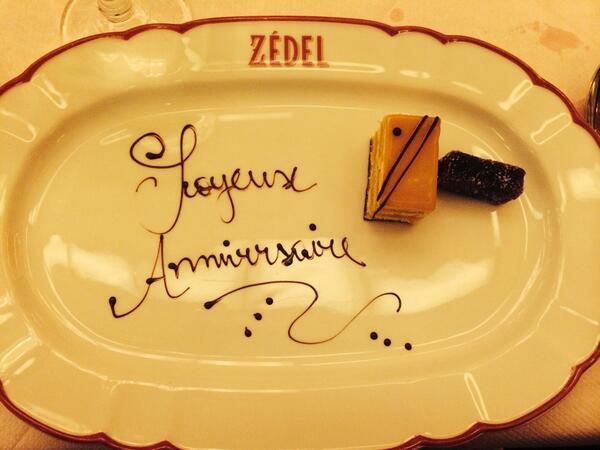 ZÉDEL
Joyeux
Anniversaire